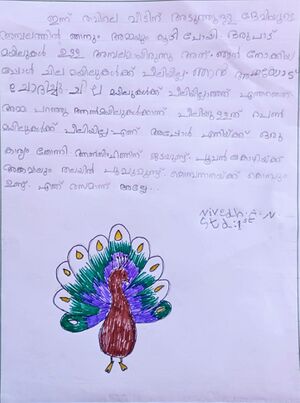 ഇന്ന് രാവിലെ വീടിന് അടുത്തുള്ള ദേവിയുടെ
അമ്പലത്തിൽ ഞാനും അമ്മയും കൂടി പോയി ഒരുപാട്
മയിലുകൾ ഉള്ള അമ്പലമായിരുന്നു അത്. ഞാൻ നോക്കിയ
പ്പോൾ ചില മയിലുകൾക്ക് പീലിയില്ല ഞാൻ അമ്മയോട്
ചോദിച്ചു ചില മയിലുകൾക്ക് പീലിയില്ലാത്തത് എന്താണെന്ന്
അമ്മ പറഞ്ഞു ആൺമയിലുകൾക്കാണ് പീലിയുള്ളത് പെൺ
മയിലുകൾക്ക് പീലിയില്ല എന്ന് അപ്പോൾ എനിയ്ക്ക് ഒരു
കാര്യം തോന്നി ആൺസിംഹത്തിന് ജടയുണ്ട്. പൂവൻ കോഴിയ്ക്ക്
അങ്കവാലും തലയിൽ പൂവുമുണ്ട്. കൊമ്പനാനയ്ക്ക് കൊമ്പും
ഉണ്ട്. എന്ത് രസമാണ് അല്ലേ...
Nivedh.A.N
Std:1st